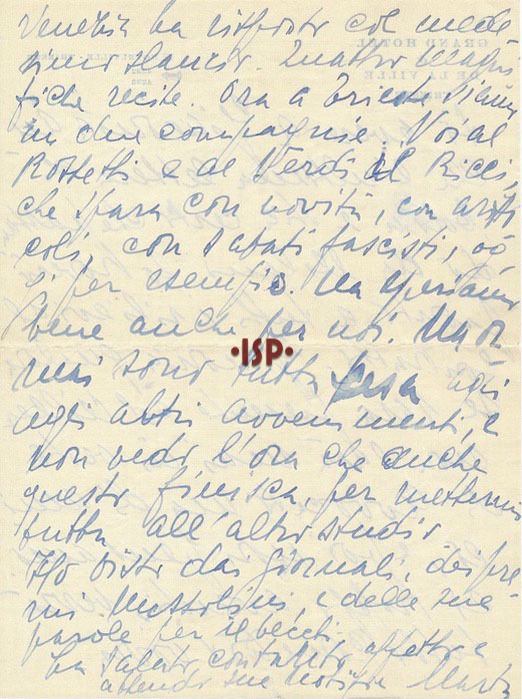 Venezia ha risposto col mede
simo slancio. Quattro magni
fiche recite. Ora a Trieste siamo
in due compagnie. Noi al
Rossetti e al Verdi il Ricci,
che spara con novità, con arti
coli, con sabati fascisti, og
gi per esempio. Ma speriamo
bene anche per noi. Ma or
mai sono tutta tesa agli
agli altri avvenimenti, e
non vedo l'ora che anche
questo finisca, per mettermi
tutta all'altro studio
Ho visto dai giornali, dei pre
mi Mussolini, e delle sue
parole per
La saluto con tutto affetto e
attendo sue notizie Marta
GRAND HOTEL
DE LA VILLE
·ISP·